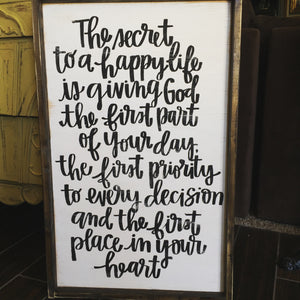 The secret
to a happy life
is giving God
the first part
of your day,
the first priority
to every decision
and the first
place in your
heart